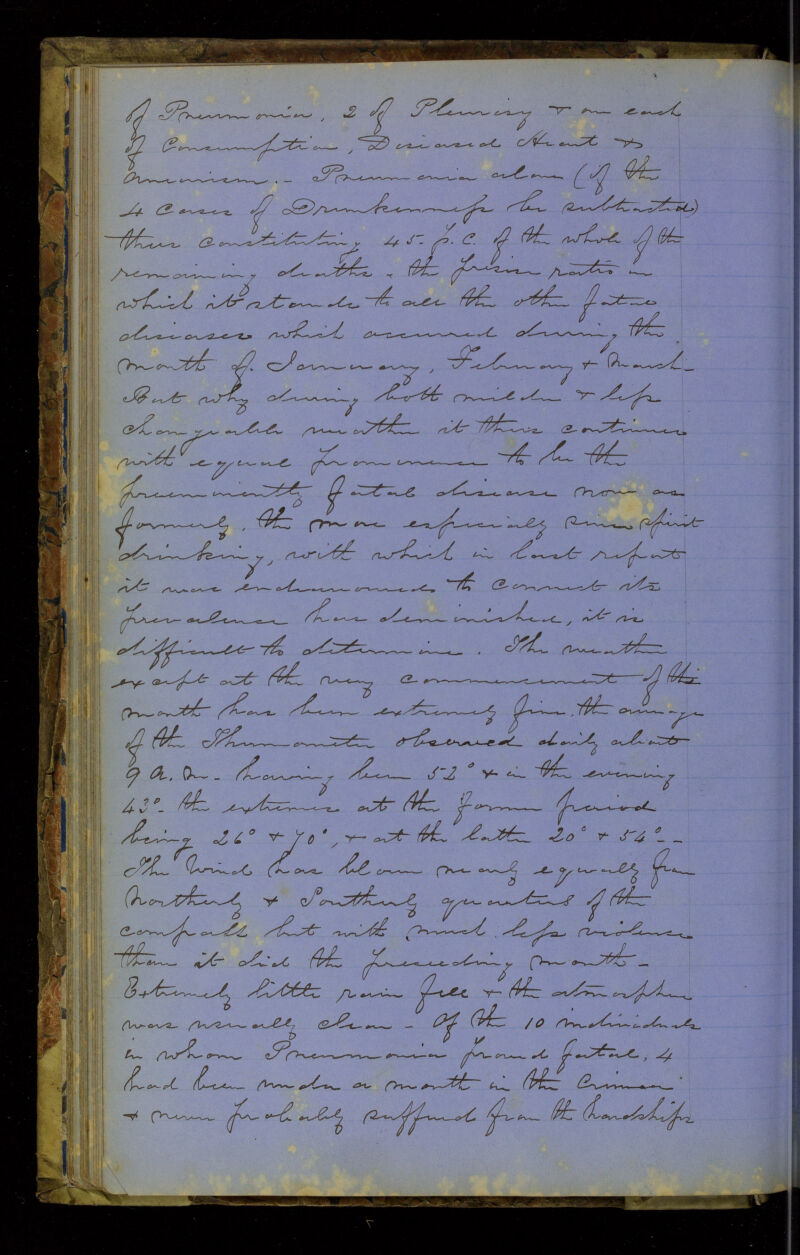 of Pneumonia, 2 of Pleurisy & one each
of Consumption, Diseased Heart &
Aneurism. - Pneumonia alone (if the
4 cases of Drunkenness be subtracted)
thus constituting 45. p.c. of the whole of the
remaining deaths - the precise ratio in
which it stands to all the other fatal
diseases which occurred during the
month of January, February & March -
But why during both milder & less
changeable weather it thus continues
with equal prominence to be the
preeminently fatal disease now as
formerly, the more especially since spirit
drinking, with which in last report
it was endeavoured to connect its
prevalence has deminished, it is
difficult to determine. The weather
except at the very commencement of the
month has been extremely fine. the average
of the Thermometer observed daily about
9 A.M. having been 52° & in the evening
43°. the extremes at the former period
being 26° & 70°, & at the latter 20° & 54°. -
The Wind has blown nearly equally from
Northerly & Southerly quarters of the
compass but with much less violence
than it did the preceeding month -
Extremely little rain fell & the atmosphere
was usually clear - Of the 10 individuals
in whom Pneumonia proved fatal, 4
had been under a month in the Crimea
& never probably suffered from the hardships